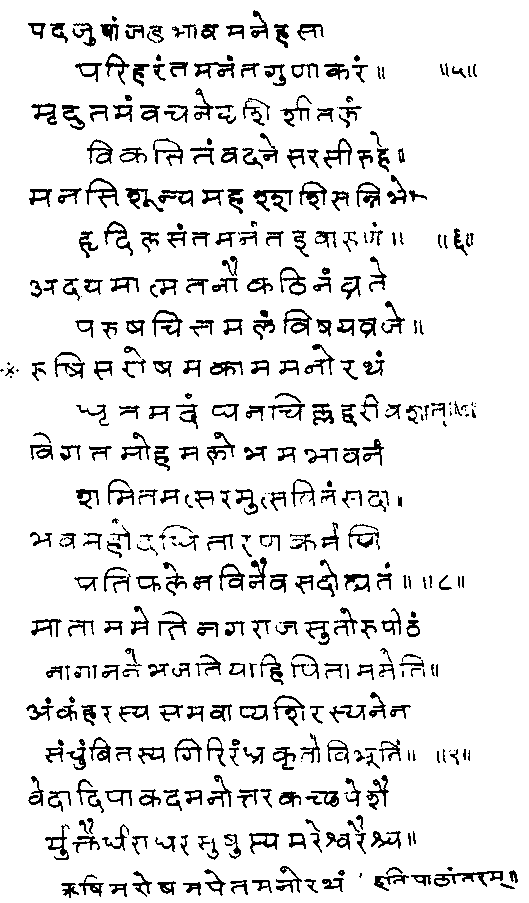 पदजुषांजहभावमनेहसा
परिहरंतमनंतगुणाकरं॥ ॥५॥
मृदुतमंवचनेदृशिशीतलं
विकसितंवदनेसरसीरुहे॥
मनसिशून्यमहशशिसन्निभे
हृदिलसंतमनंतइवारुणं॥ ॥६॥
अदयमात्मतनौकठिनंव्रते
परुषचित्तमलंविषयव्रजे॥
रुषिसरोषमकाममनोरथं
धृतमदं
विगतमोहमलोभमभावनं
शमितमत्सरमुत्सविलंसदा।
भवमहोदधितारणकर्मणि
प्रतिफलेनविनैवसदोत्प्रतं॥ ॥८॥
माताममेतिनगराजसुतोरुपीठं
नागाननेभजतियाहिपिताममेति॥
अंकंहरस्यसमवाप्यशिरस्यनेन
संचुंबितस्यगिरिरंध्रकृतोविभूतिं॥ ॥९॥
वेदादिपाकदमनोत्तरकच्छपेशै
र्युक्तैर्धराधरसुषुप्त्यमरेश्वरैश्च॥
ऋषिमरोषमपेतमनोरथं इतिपाठांतरम्॥